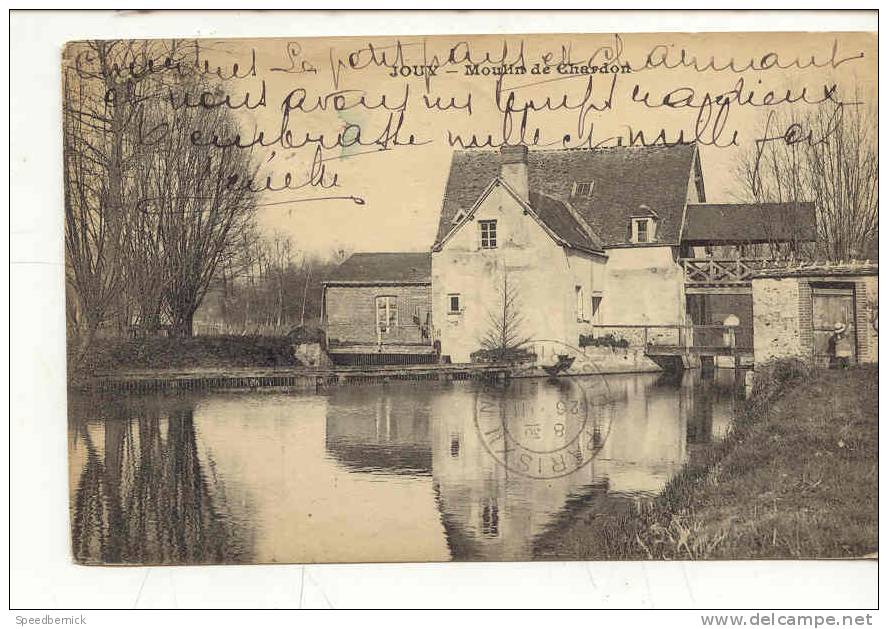 Chéries Le petit pays est charmant
JOUY - Moulin de Chardon
et nous avons un temps radieux
embrasse mille et mille fois
PARIS
Speedbernick
www.delcampe.net